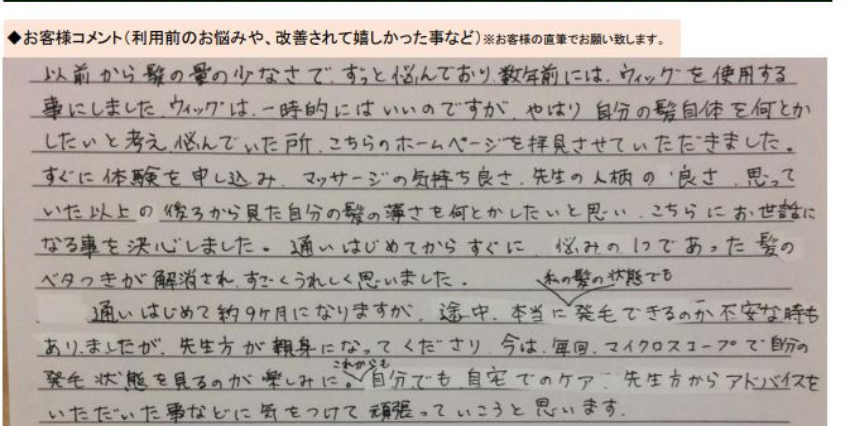 ◆お客様コメント(利用前のお悩みや、改善されて嬉しかった事など)※お客様の直筆でお願い致します。
以前から髪の量の少なさで、ずっと悩んでおり、数年前には、ウィッグを使用する
事にしました。ウィッグは、一時的にはいいのですが、やはり自分の髪自体を何とか
したいと考え、悩んでいた所、こちらのホームページを拝見させていただきました。
すぐに体験を申し込み、マッサージの気持ち良さ、先生の人柄の良さ、思って
いた以上の後ろから見た自分の髪の薄さを何とかしたいと思い、こちらにお世話に
なる事を決心しました。通いはじめてからすぐに、悩みの1つであった髪の
ベタつきが解消され、すごくうれしく思いました。
私の髪の状態でも
通いはじめて約9ヶ月になりますが、途中、本当に発毛できるのか不安な時も
ありましたが、先生方が親身になってくださり、今は、毎回、マイクロスコープで自分の
これからも
発毛状態を見るのが楽しみに。自分でも自宅でのケア、先生方からアドバイスを
いただいた事などに気をつけて頑張っていこうと思います。